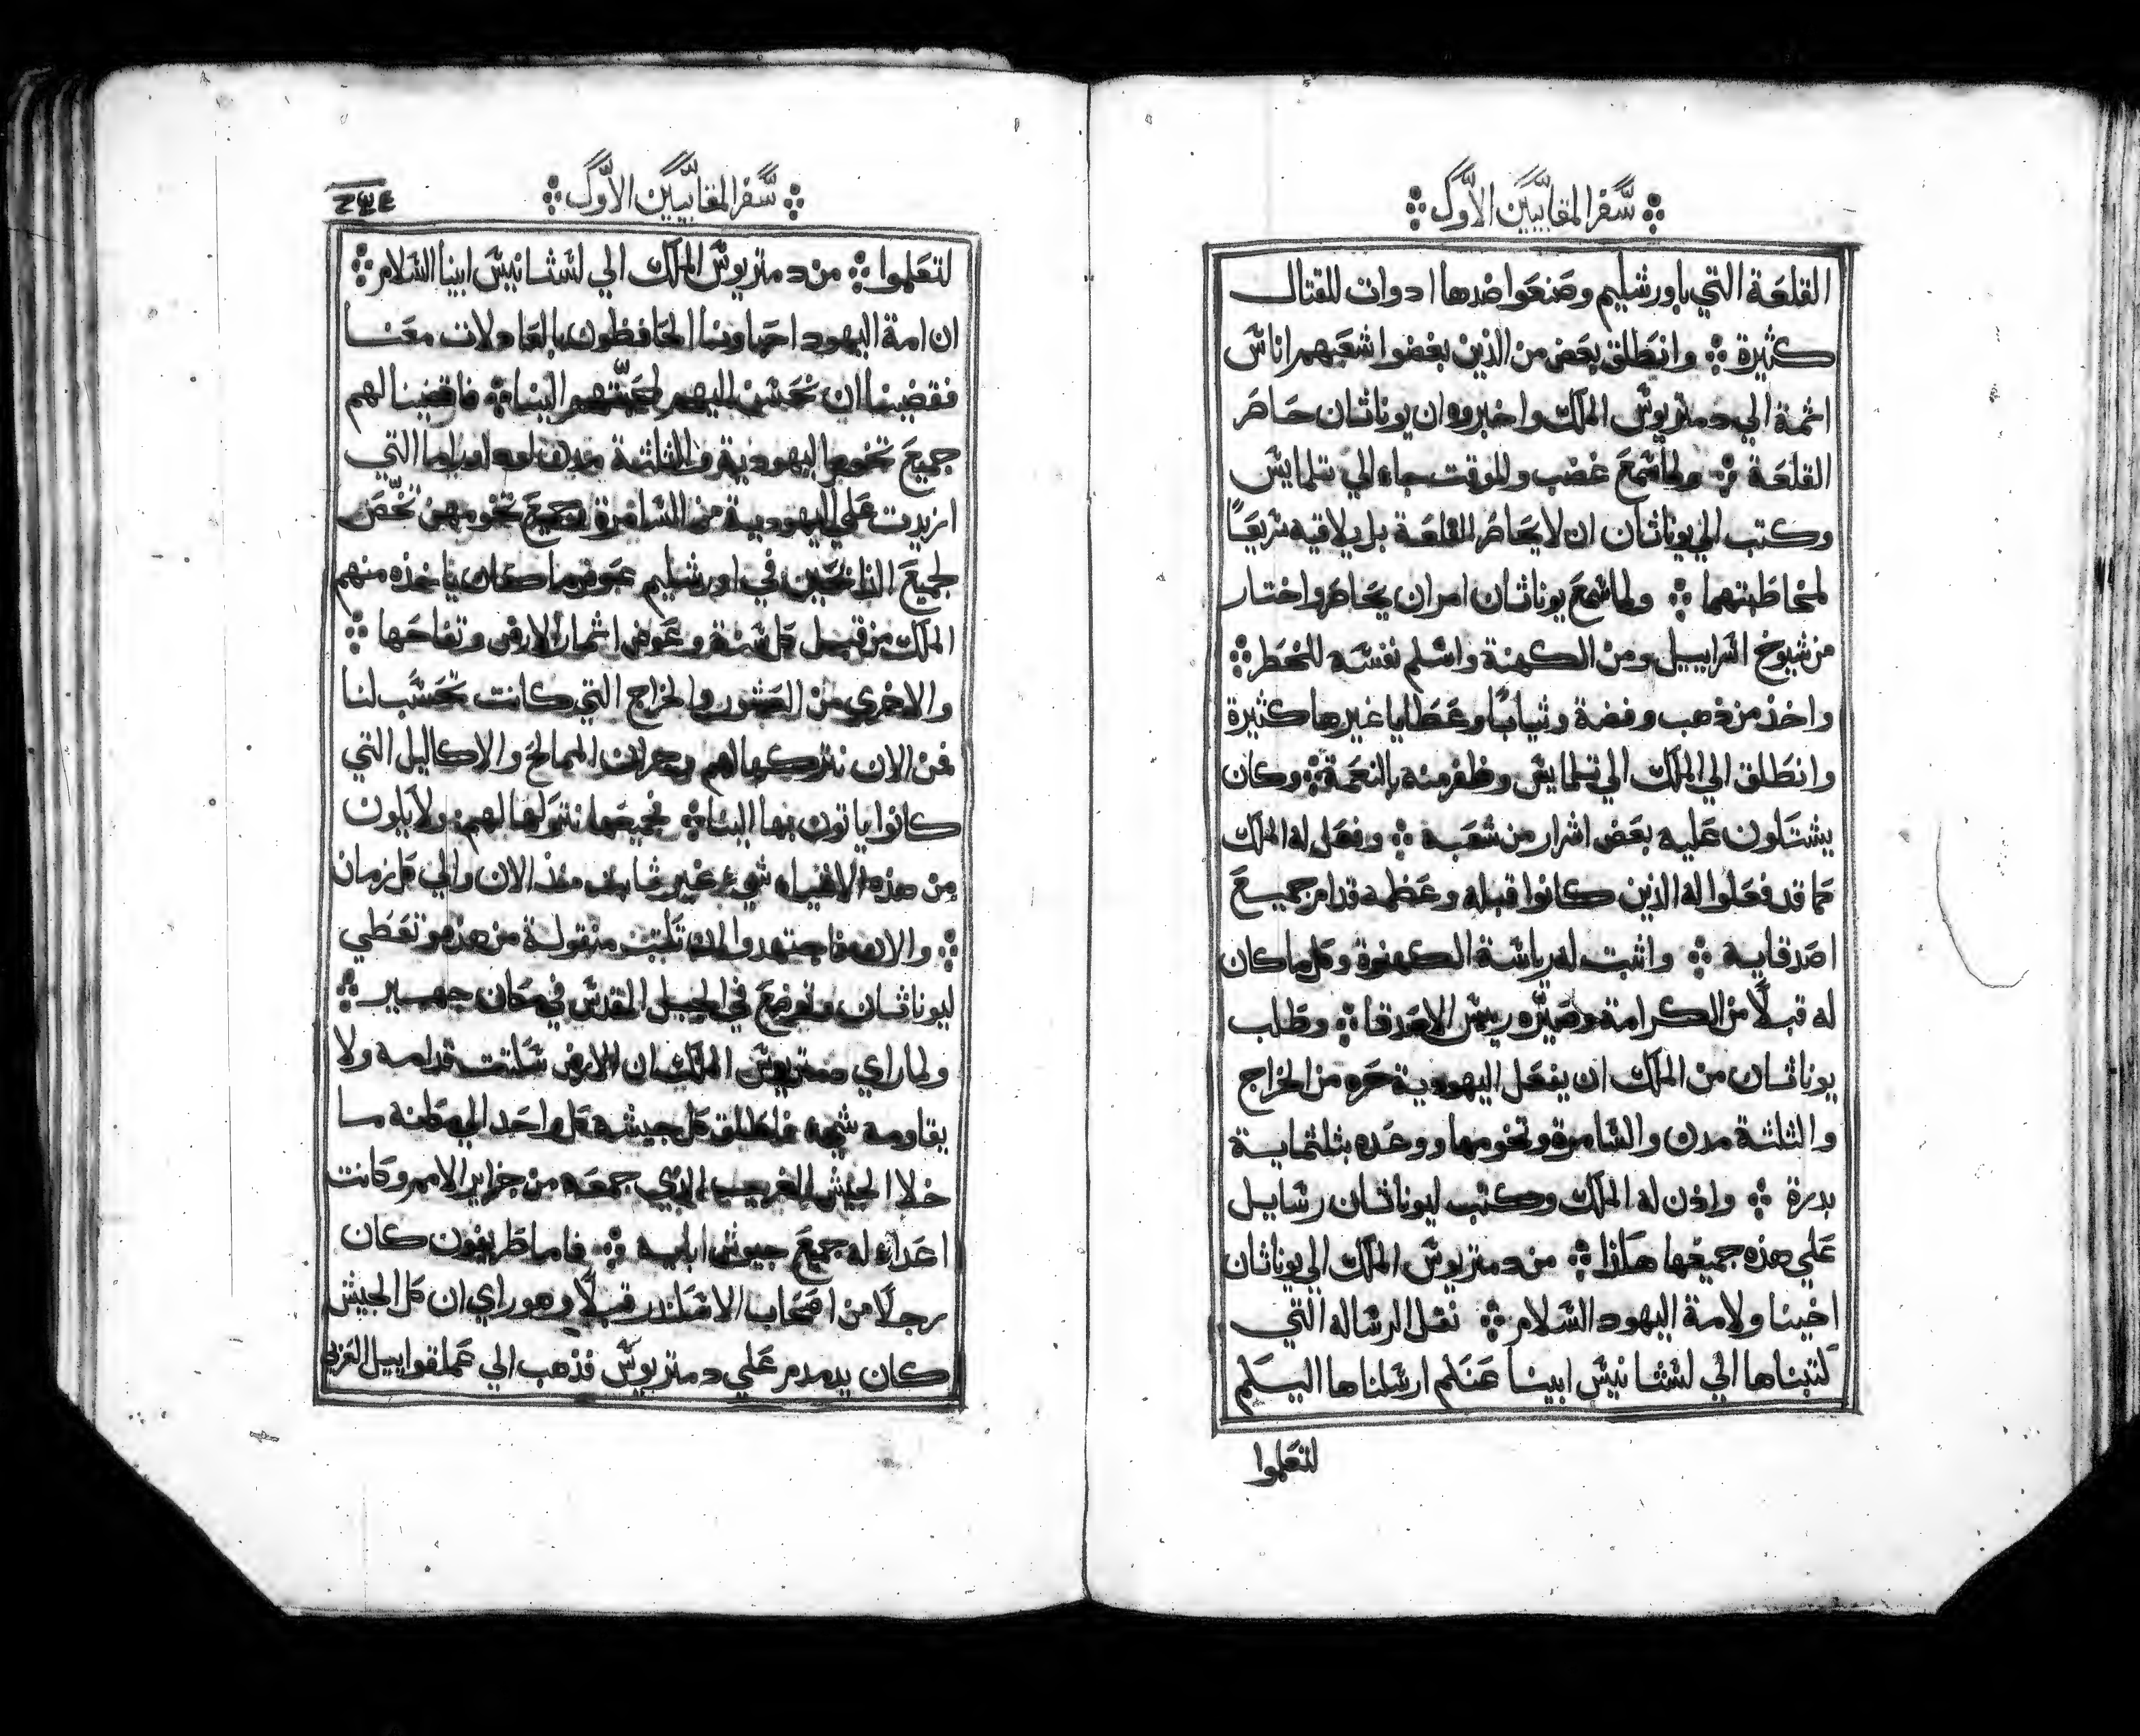 سفر المقابيين الاول
القلعة التي باورشليم وصنعوا ضدها ادوات للقتال
كثيرة ܀ وانطلق بعض من الذين بغضوا شعبهم اناس
اثمة الي دمتريوس الملك واخبروه ان يوناثان حاصر
القلعة ܀ ولما سمع غضب وللوقت جاء الي تلمايس
وكتب الي يوناثان ان لا يحاصر القلعة بل يلاقيه سريعًا
لمخاطبتهما ܀ ولما سمع يوناثان امر ان يحاصر واختار
من شيوخ اسراييل ومن الكهنة واسلم نفسه للخطر ܀
واخذ من ذهب وفضة وثيابًا وعطايا غيرها كثيرة
وانطلق الي الملك الي تلمايس وظفر منه بالنعمة ܀ وكان
يشتكون عليه بعض اشرار من شعبه ܀ وفعل له الملك
كما قد فعلوا له الذين كانوا قبله وعظمه قدام جميع
اصدقايه ܀ واثبت له رياسة الكهنوة وكل ما كان
له قبلًا من الكرامة وصيّره رييس الاصدقا ܀ وطلب
يوناثان من الملك ان يفعل اليهودية حره من الخراج
والثلثة مدن والسامرة وتخومها ووعده بثلثماية
بدرة ܀ واذن له الملك وكتب ليوناثان رسايل
علي هذه جميعها هكذا ܀ من دمتريوس الملك الي يوناثان
اخينا ولامة اليهود السلام ܀ نقل الرساله التي
كتبناها الي لستانيس ابينا عنكم ارسلناها اليكم
لتعلموا
سفر المقابيين الاول
لتعلموا ܀ من دمتريوس الملك الي لستانيس ابينا السلام ܀
ان امة اليهود احباونا الحافظون بالعادلات معنا
فقضينا ان نحسن اليهم لمحبّتهم الينا ܀ فاقضينا لهم
جميع تخوم اليهودية والثلثة مدن التي
ازيدت علي اليهودية من السامرة وجميع تخومهن تخص
لجميع الذابحين في اورشليم عوض ما كان ياخذه منهم
الملك من قبل كل سنة وعوض اثمار الارض وتفاحها ܀
والاخري من العشور والخراج التي كانت تحسب لنا
فمن الان نتركها لهم وجرات الممالح والاكاليل التي
كانوا ياتون بها الينا ܀ فجميعها نتركها لهم ولا يكون
من هذه الاشياء شيء غير ثابت منذ الان والي كل زمان
܀ والان فاجتهدوا ان تكتب منقولة من هذه وتعطي
ليوناثان وتوضع في الجبل المقدس في مكان جهير ܀
ولما راي دمتريوس الملك ان الارض سكتت قدامه ولا
يقاومه شيء فاطلق كل جيشه كل واحد الي مكانه ما
خلا الجيش الغريب الذي جمعه من جزاير الامم وكانت
اعداء له جميع جيوش ابايه ܀ فاما طريفون كان
رجلًا من اصحاب الاسكندر قبلًا وهو راي ان كل الجيش
كان يدمدم علي دمتريوس فذهب الي عملقواييل العربي